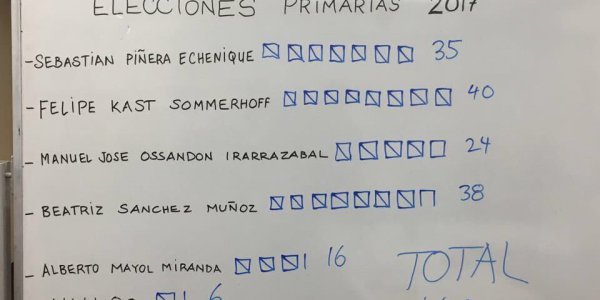 ELECCIONES PRIMARIAS 2017
- SEBASTIAN PIÑERA ECHENIQUE 35
- FELIPE KAST SOMMERHOFF 40
- MANUEL JOSE OSSANDON IRARRAZABAL 24
- BEATRIZ SANCHEZ MUÑOZ 38
- ALBERTO MAYOL MIRANDA 16
TOTAL
6